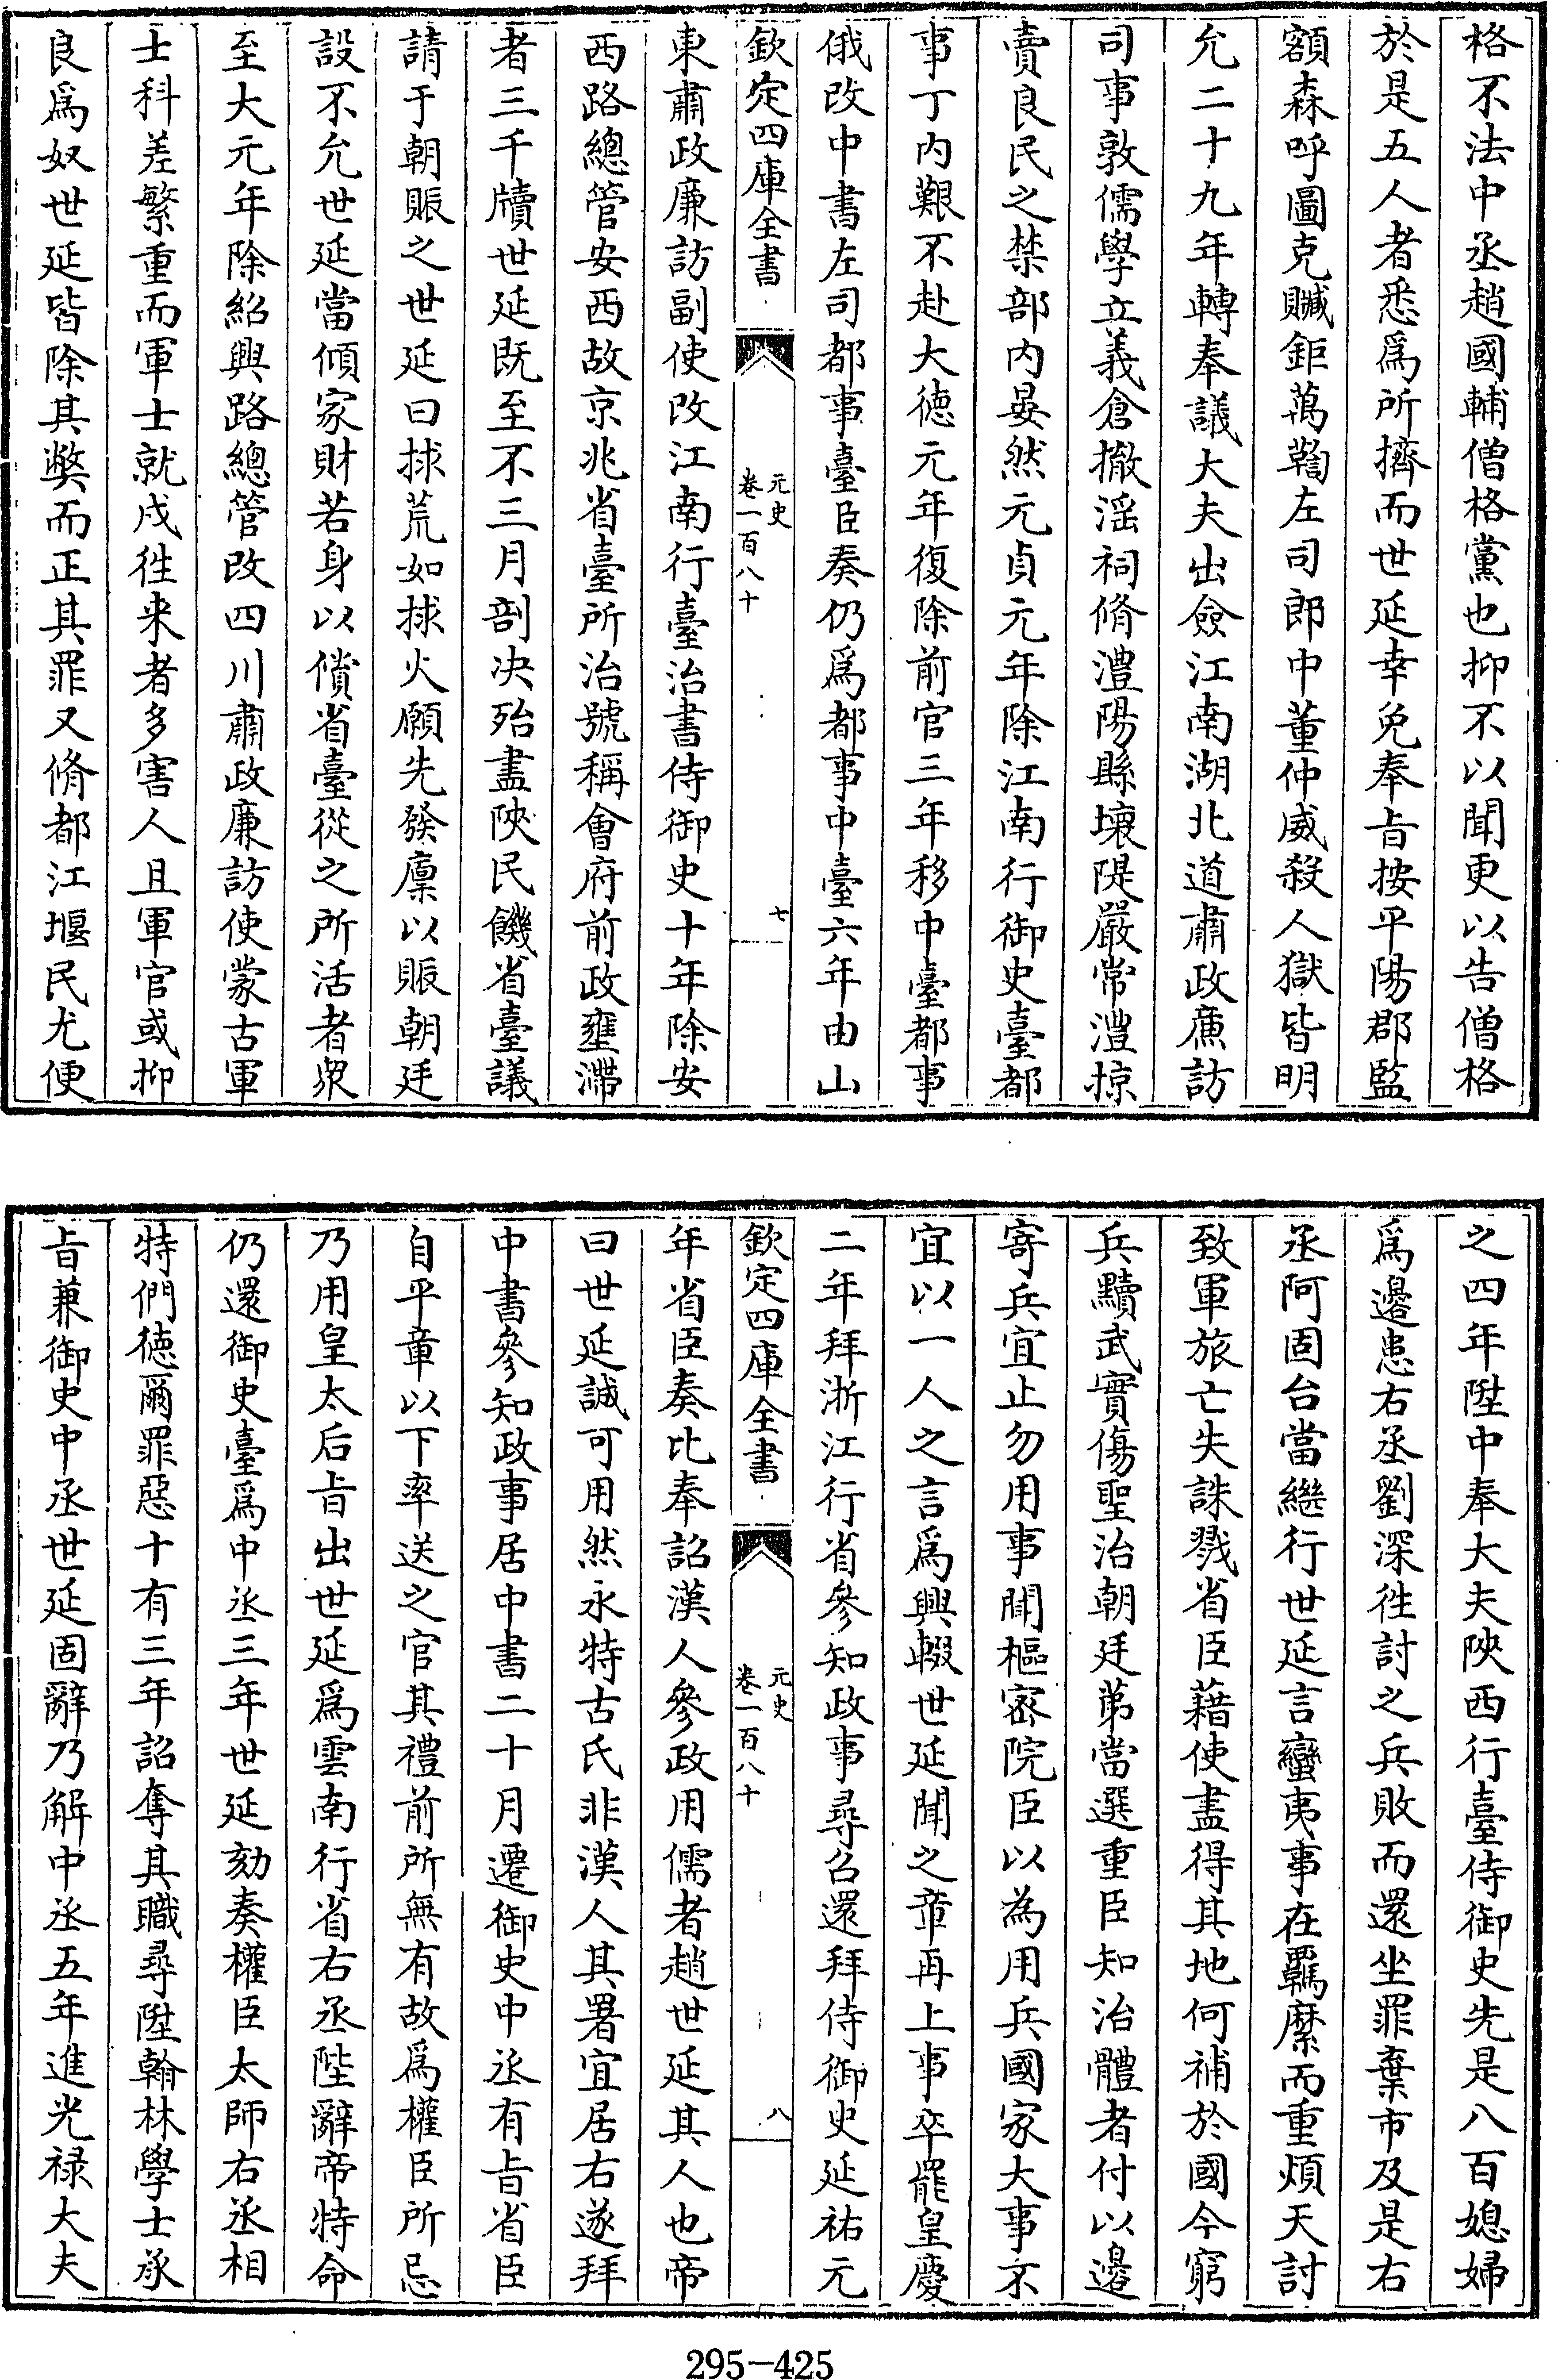 格不法中丞趙國輔僧格黨也抑不以聞更以告僧格
於是五人者悉爲所擠而世延幸免奉㫖按平陽郡監
額森呼圖克贓鉅萬鞫左司郎中董仲威殺人獄皆明
允二十九年轉奉議大夫出僉江南湖北道肅政廉訪
司事敦儒學立義倉撤淫祠脩澧陽縣壞隄嚴常澧掠
賣良民之禁部内晏然元貞元年除江南行御史臺都
事丁内艱不赴大徳元年復除前官三年移中臺都事
俄改中書左司都事臺臣奏仍爲都事中臺六年由山
欽定四庫全書
元史
卷一百八十
七
東肅政廉訪副使改江南行臺治書侍御史十年除安
西路總管安西故京兆省臺所治號稱會府前政壅滯
者三千牘世延既至不三月剖决殆盡陜民饑省臺議
請于朝賑之世延曰捄荒如捄火願先發廪以賑朝廷
設不允世延當傾家財若身以償省臺從之所活者衆
至大元年除紹興路總管改四川肅政廉訪使蒙古軍
士科差繁重而軍士就戍徃来者多害人且軍官或抑
良爲奴世延皆除其弊而正其罪又脩都江堰民尤便
之四年陞中奉大夫陜西行臺侍御史先是八百媳婦
爲邊患右丞劉深徃討之兵敗而還坐罪棄市及是右
丞阿固台當繼行世延言蠻夷事在羈縻而重煩天討
致軍旅亡失誅戮省臣藉使盡得其地何補於國今窮
兵黷武實傷聖治朝廷第當選重臣知治體者付以邊
寄兵宜止勿用事聞樞宻院臣以為用兵國家大事不
宜以一人之言爲興輟世延聞之章再上事卒罷皇慶
二年拜浙江行省參知政事尋召還拜侍御史延祐元
欽定四庫全書
元史
卷一百八十
八
年省臣奏比奉詔漢人參政用儒者趙世延其人也帝
曰世延誠可用然永特古氏非漢人其署宜居右遂拜
中書參知政事居中書二十月遷御史中丞有㫖省臣
自平章以下率送之官其禮前所無有故爲權臣所忌
乃用皇太后㫖出世延爲雲南行省右丞陛辭帝特命
仍還御史臺爲中丞三年世延劾奏權臣太師右丞相
特們徳爾罪惡十有三年詔奪其職尋陞翰林學士承
㫖兼御史中丞世延固辭乃解中丞五年進光禄大夫
295-425